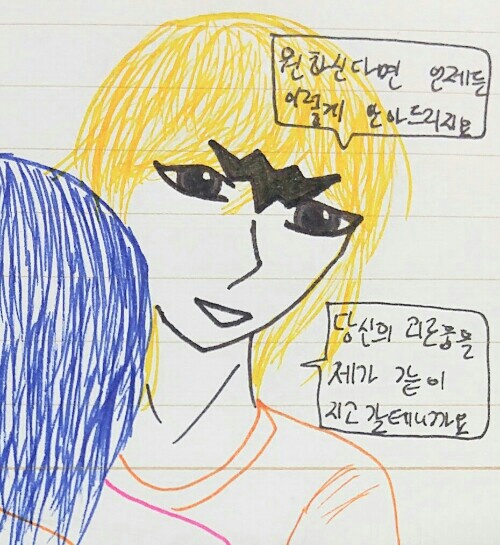 원하신다면 언제든
이렇게 안아드리지요
당신의 괴로움을
제가 같이
지고갈테니까요